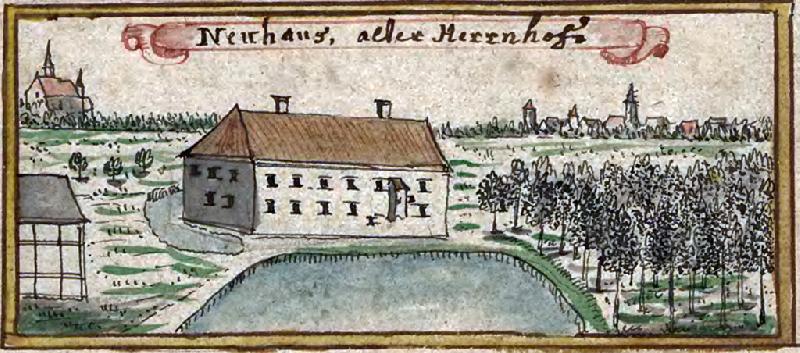 Neuhaus, alter Herrnhof.